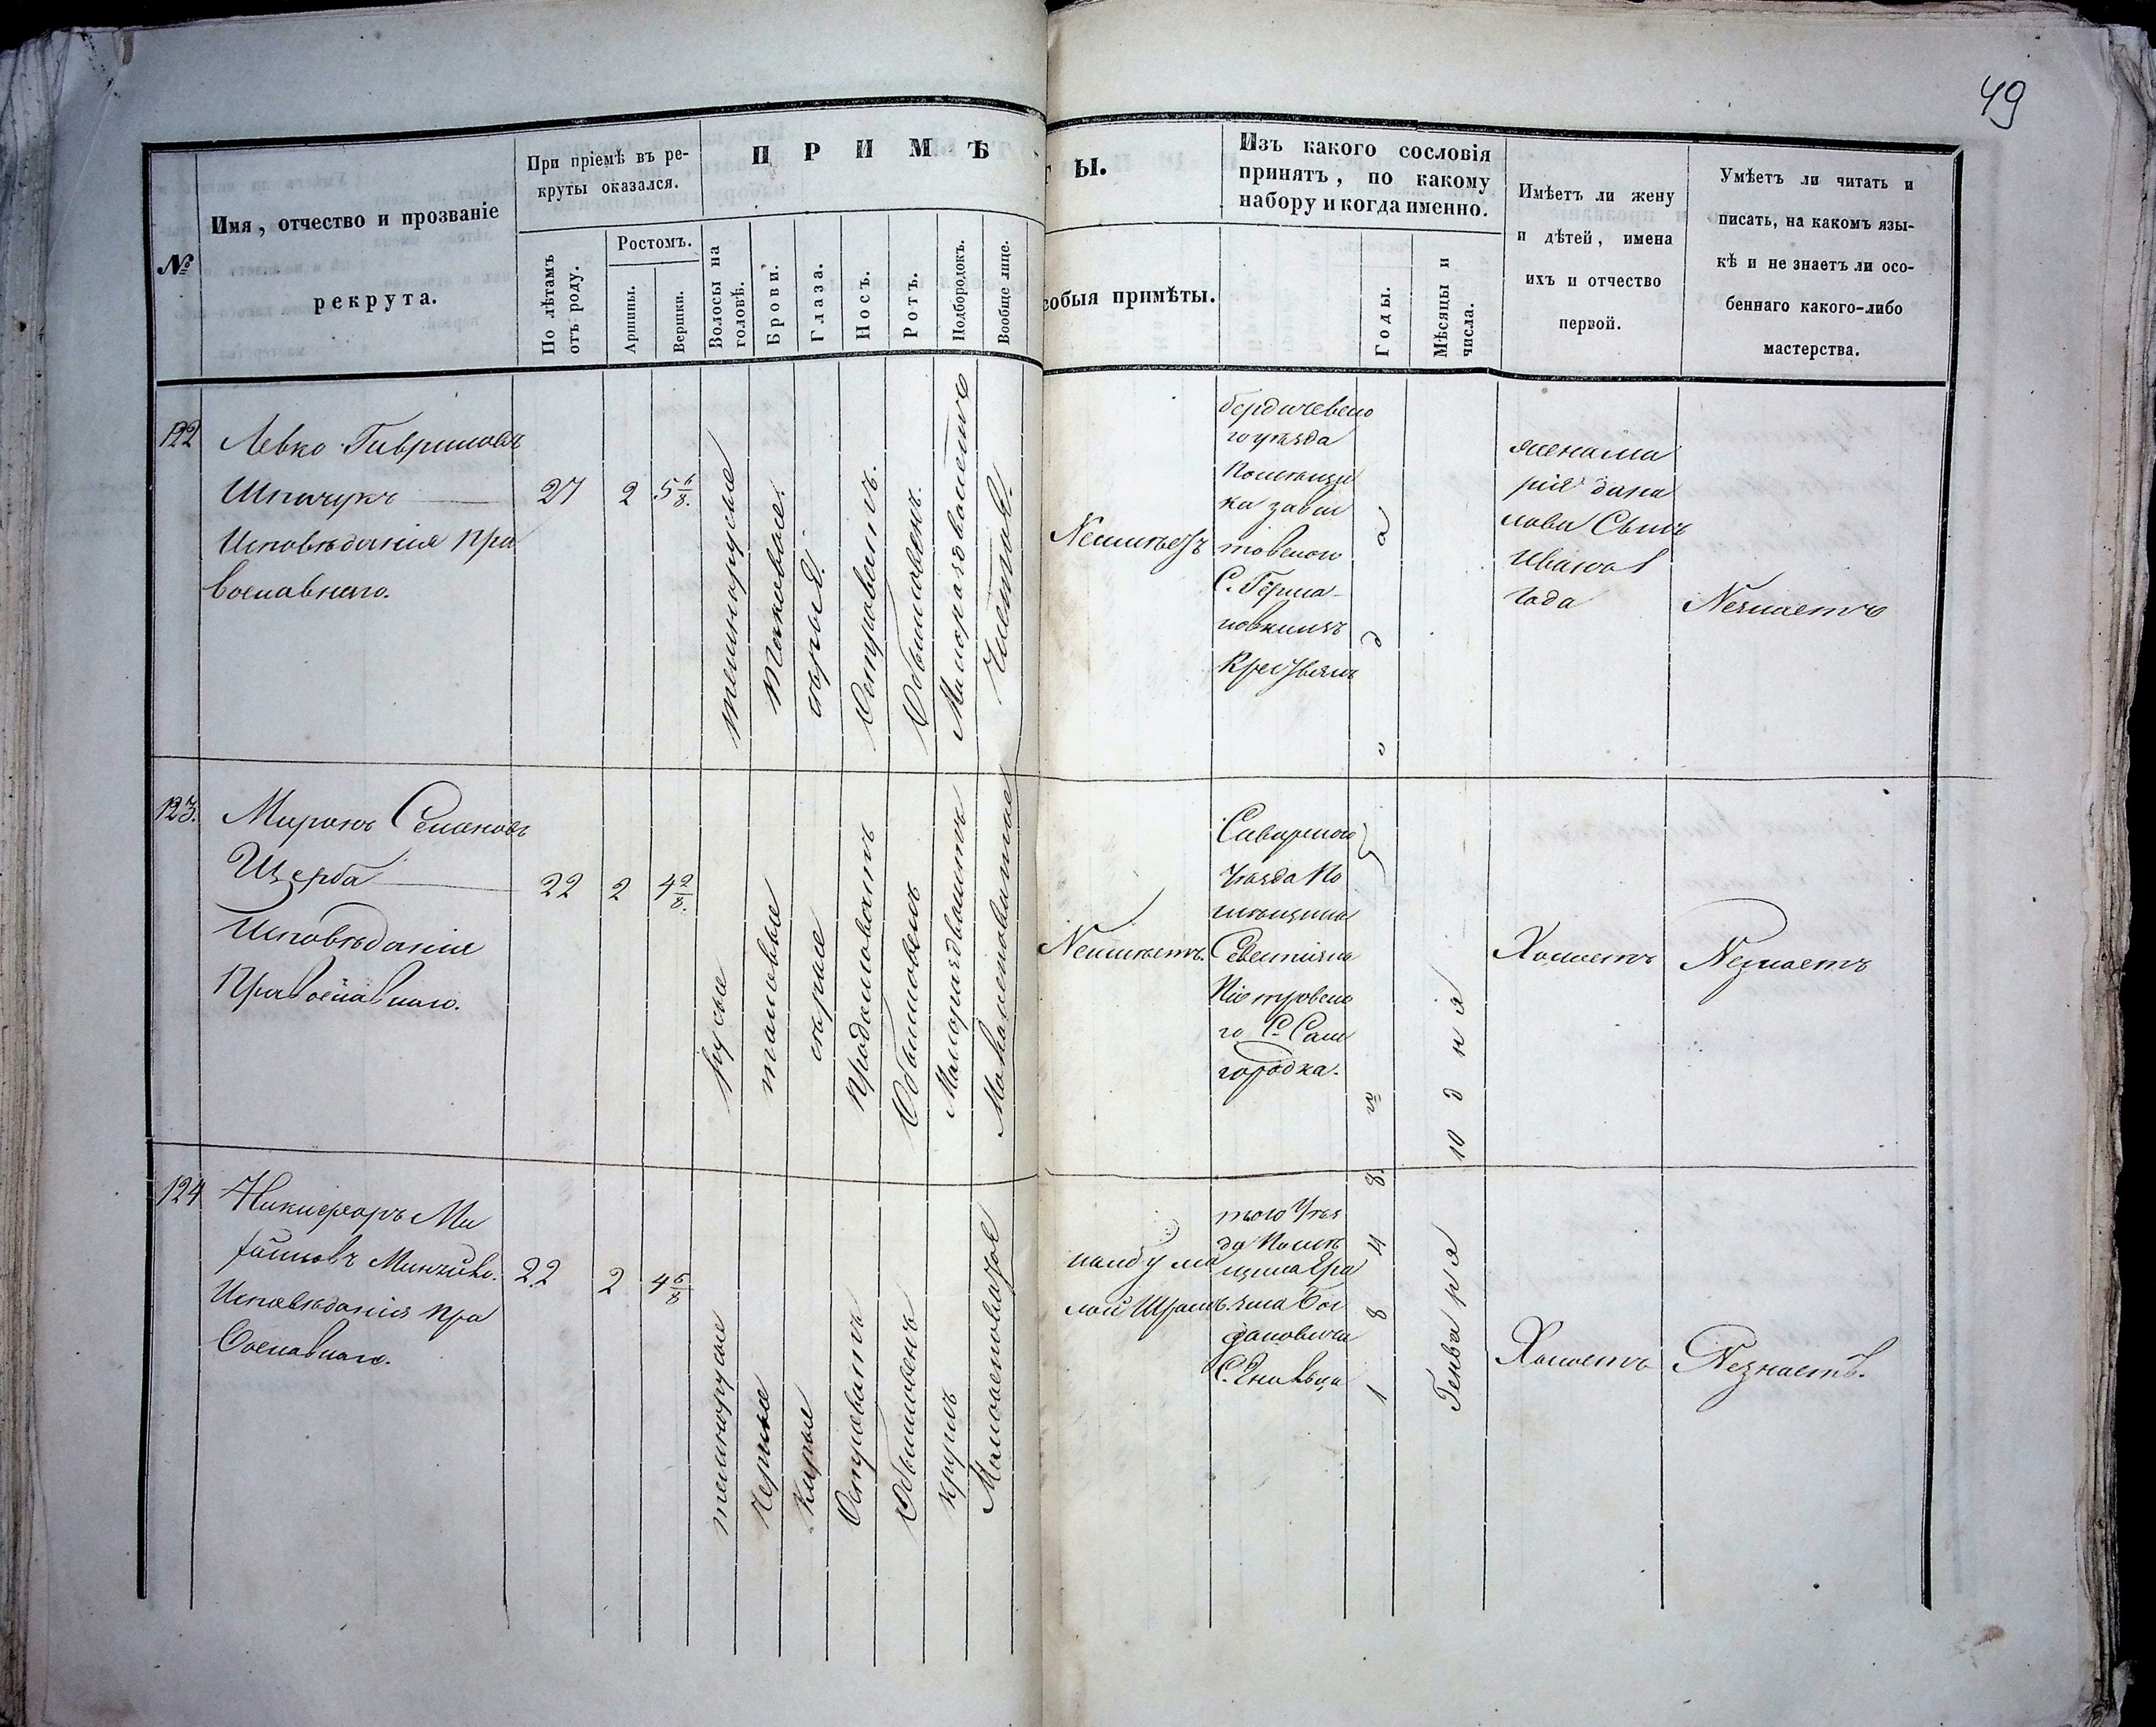 49
№
Имя, отчество и прозваніе
рекрута.
При пріемѣ въ ре-
круты оказался.
По лѣтамъ
отъ роду.
Ростомъ.
Аршины.
Вершки.
ПРИМѢТЫ.
Волосы на
головѣ.
Брови.
Глаза.
Носъ.
Ротъ.
Подбородокъ.
Вообще лице.
собыя примѣты.
Изъ какого сословія
принятъ, по какому
набору и когда именно.
Годы.
Мѣсяцы и
числа.
Имѣетъ ли жену
и дѣтей, имена
ихъ и отчество
первой.
Умѣетъ ли читать и
писать, на какомъ язы-
кѣ и не знаетъ ли осо-
беннаго какого-либо
мастерства.
122
Левко Гавриловъ
Шпачукъ
Исповѣданія Пра
вославнаго.
27
2
5 6/8.
темнорусые
таковые.
сѣрые.
Островатъ.
Обыкновенъ.
Малораздвоенъ
Чистое.
Неимѣетъ
бердичевско
го уѣзда
Помѣщи
ка
С.
Крестьянъ
жена Ма
рія Дани
лова Сынъ
Иванъ 1
года
Незнаетъ
123.
Миронъ Семеновъ
Щерба
Исповѣданія
Православнаго.
22
2
4 2/8.
русые
таковые
сѣрые
Продолговатъ
Обыкновенъ
Малораздвоенъ
Неимѣетъ.
Сквирскаго
Уѣзда По
мѣщика
го С. Сам
городка.
Холостъ
Незнаетъ
124
Никифоръ Ми
хайловъ
Исповѣданія Пра
вославнаго.
22
2
4 6/8
темнорусые
Черные
Карие
Островатъ
Обыкновенъ
круглъ
шрамъ
того Уѣз
да Помѣ
щика
С.
1848 года
Генваря 10 дня
Холостъ
Незнаетъ.